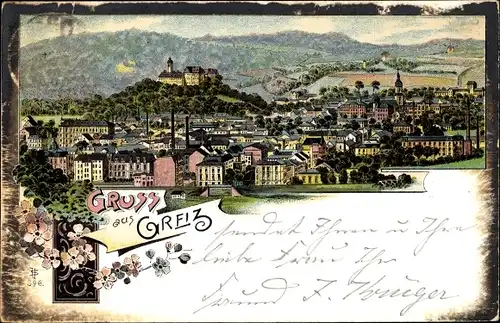 GRUSS
aus GREIZ
sendet Ihnen u Ihre
liebe Frau Ihr
Freund F. Krüger
396.